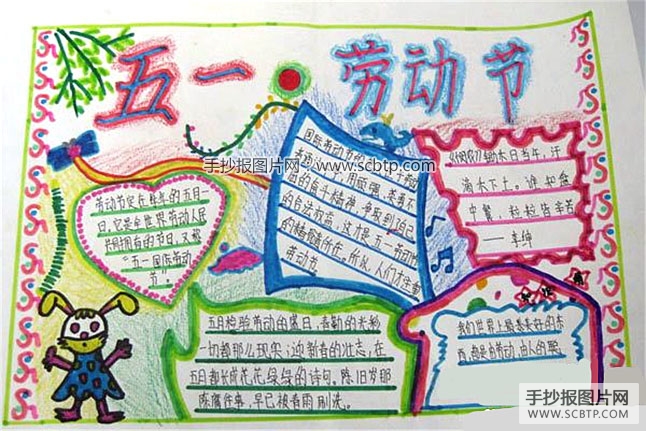 五一 劳动节
手抄报图片网：www.scbtp.com
国际劳动节的
的奋斗精神，争取到自己
的合法权益，这才是五一劳动节
的精髓所在。所以，人们才注重
劳动节。
锄禾日当午，汗
滴禾下土。谁知盘
中餐，粒粒皆辛苦
劳动节定在每年的五月一
日，它是全世界劳动人民
共同拥有的节日，又被
“五一国际劳动
节”
五月检验劳动的盛日，喜勤的光彩
一切都那么现实；迎新春的壮志，在
五月都长成花花绿绿的诗句。陈旧岁那
陈腐往事，早已被春雨刷洗。
我们世界上最美好的东
西，都是由劳动、由人的聪
手抄报图片网
WWW.SCBTP.COM